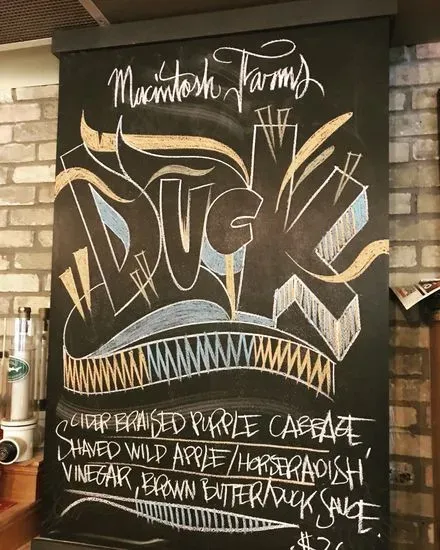 Macintosh Farms
DUCK
CIDER BRAISED PURPLE CABBAGE
SHAVED WILD APPLE/HORSERADISH
VINEGAR, BROWN BUTTER/DUCK SAUCE.